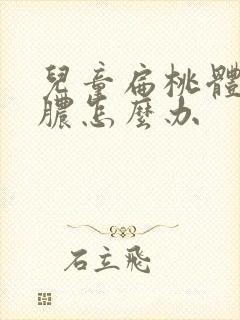 兒童扁桃體
膿怎麼办
石立飛